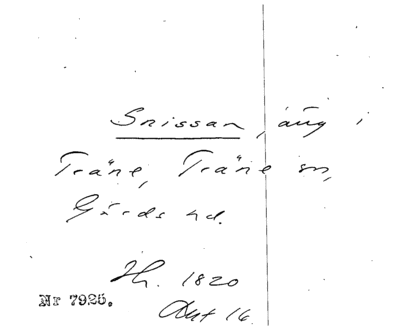 Snissan, äng i
Träne, Träne sn,
Gärds hd.
Sk. 1820
Akt 16.
Nr 7925.